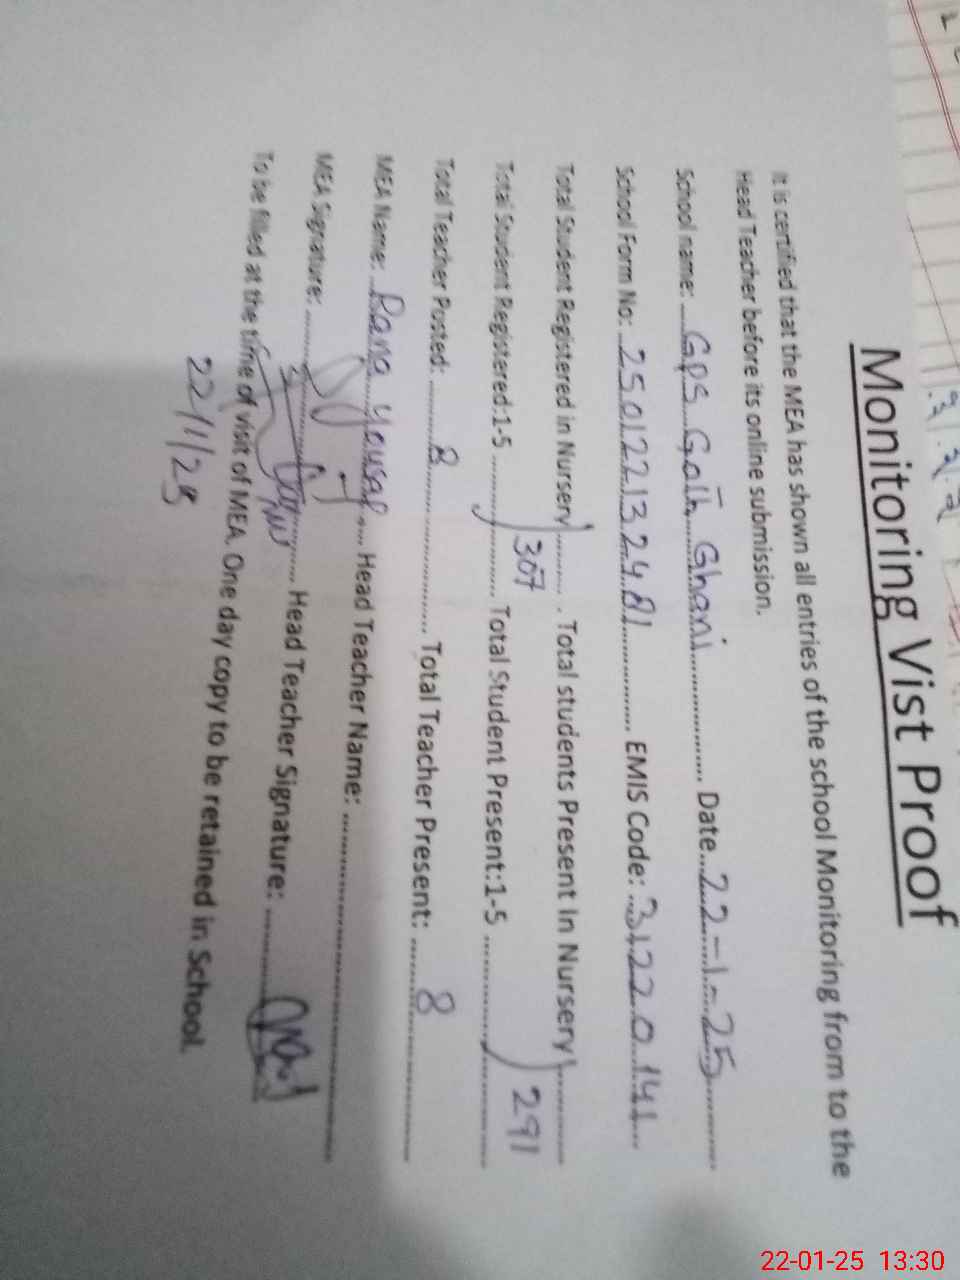 Monitoring Vist Proof
It is certified that the MEA has shown all entries of the school Monitoring from to the
Head Teacher before its online submission.
School name: Gps Goth Ghani Date 22-1-25
School Form No: 250122132481 EMIS Code: 31220141
Total Student Registered in Nursery Total students Present In Nursery
307 291
Total Student Registered:1-5 Total Student Present:1-5
Total Teacher Posted: 8 Total Teacher Present: 8
MEA Name: Rana Yousaf Head Teacher Name:
MEA Signature: Head Teacher Signature:
To be filled at the time of visit of MEA. One day copy to be retained in School.
22/1/25
22-01-25 13:30